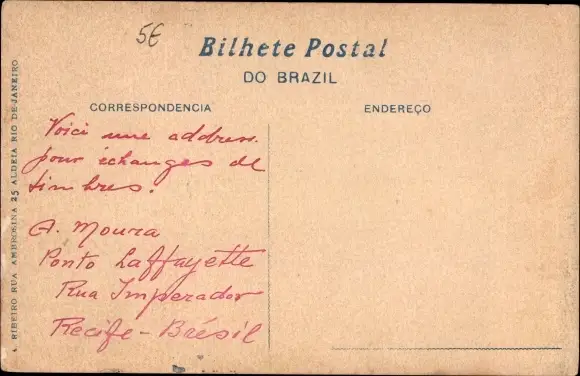 5€
Bilhete Postal
DO BRAZIL
CORRESPONDENCIA
ENDEREÇO
Voici une address.
pour échanges de
timbres.
A. Moura
Ponto Laffayette
Rua Imperador
Recife - Brésil
A. RIBEIRO RUA AMBROSINA 25 ALDEIA RIO DE JANEIRO